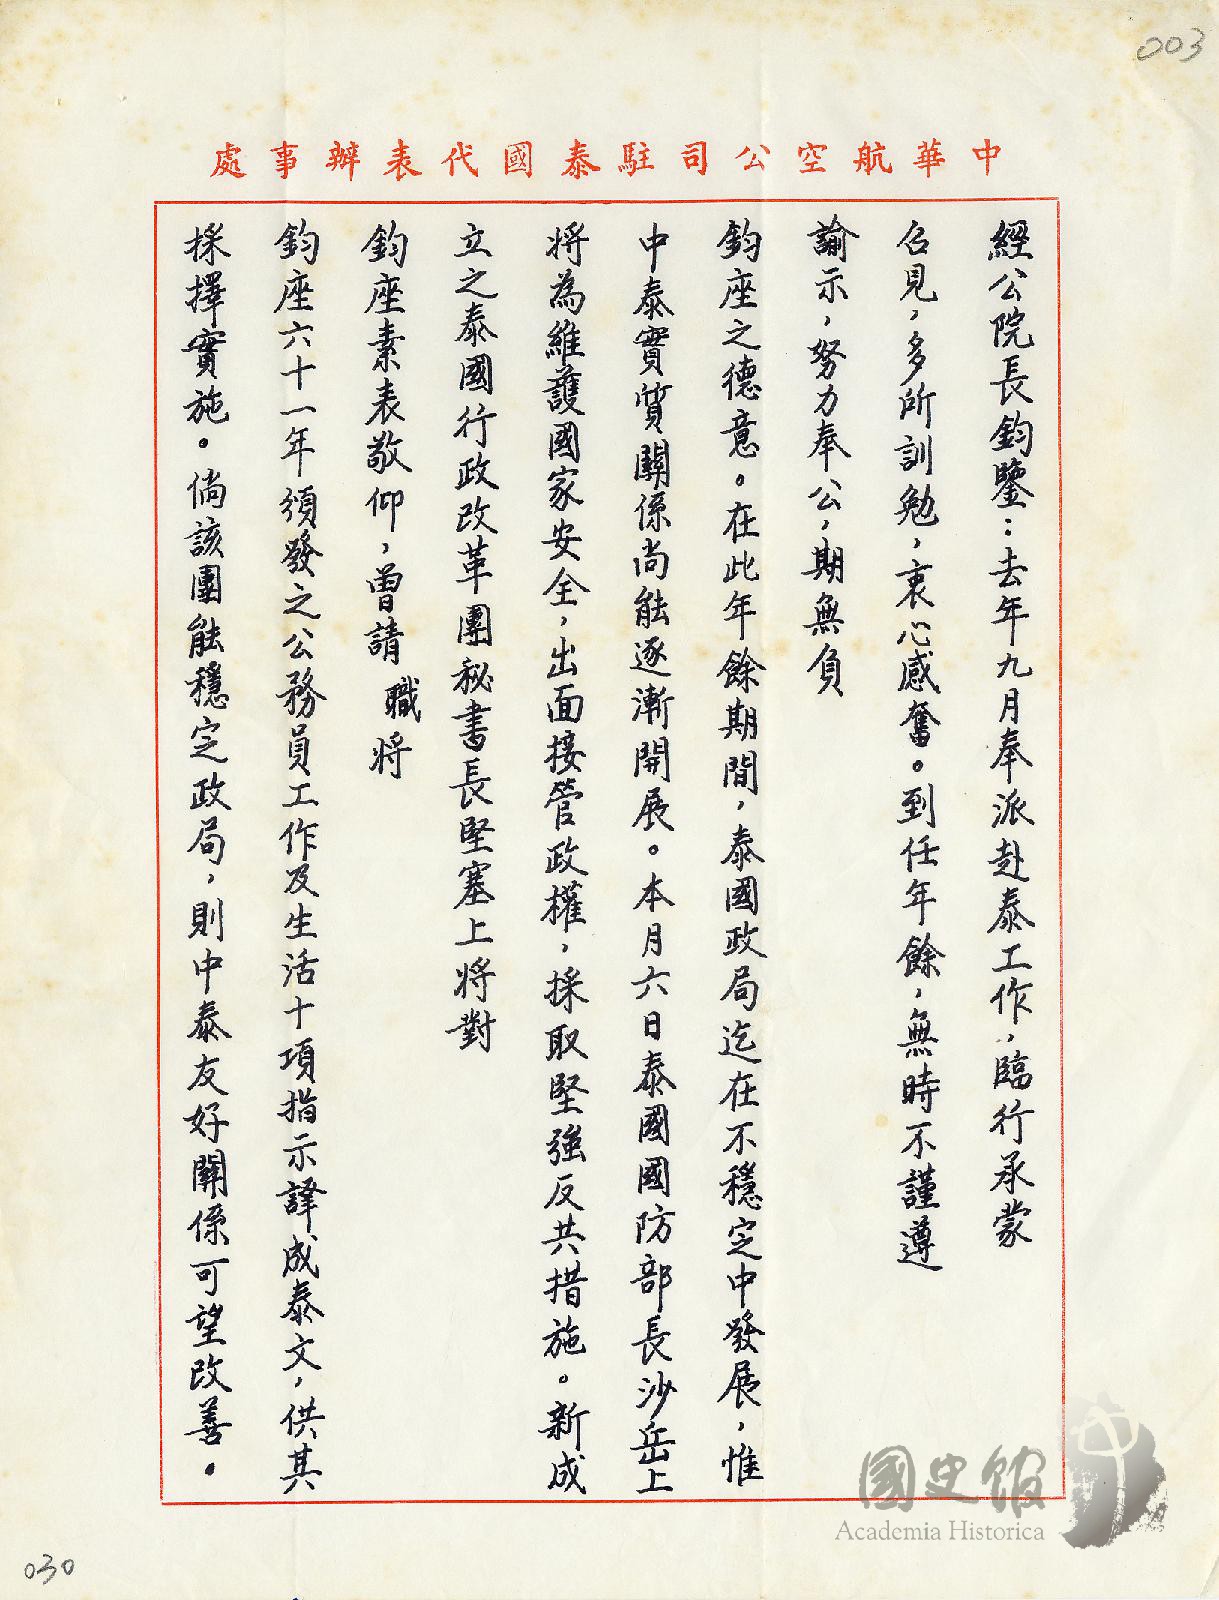 003
中華航空公司駐泰國代表辦事處
經公院長鈞鑒：去年九月奉派赴泰工作，臨行承蒙
召見，多所訓勉，衷心感奮。到任年餘，無時不謹遵
諭示，努力奉公，期無負
鈞座之德意。在此年餘期間，泰國政局迄在不穩定中發展，惟
中泰實質關係尚能逐漸開展。本月六日泰國國防部長沙岳上
將為維護國家安全，出面接管政權，採取堅強反共措施。新成
立之泰國行政改革團秘書長堅塞上將對
鈞座素表敬仰，曾請職將
鈞座六十一年頒發之公務員工作及生活十項指示譯成泰文，供其
採擇實施。倘該團能穩定政局，則中泰友好關係可望改善。
國史館
Academia Historica
030